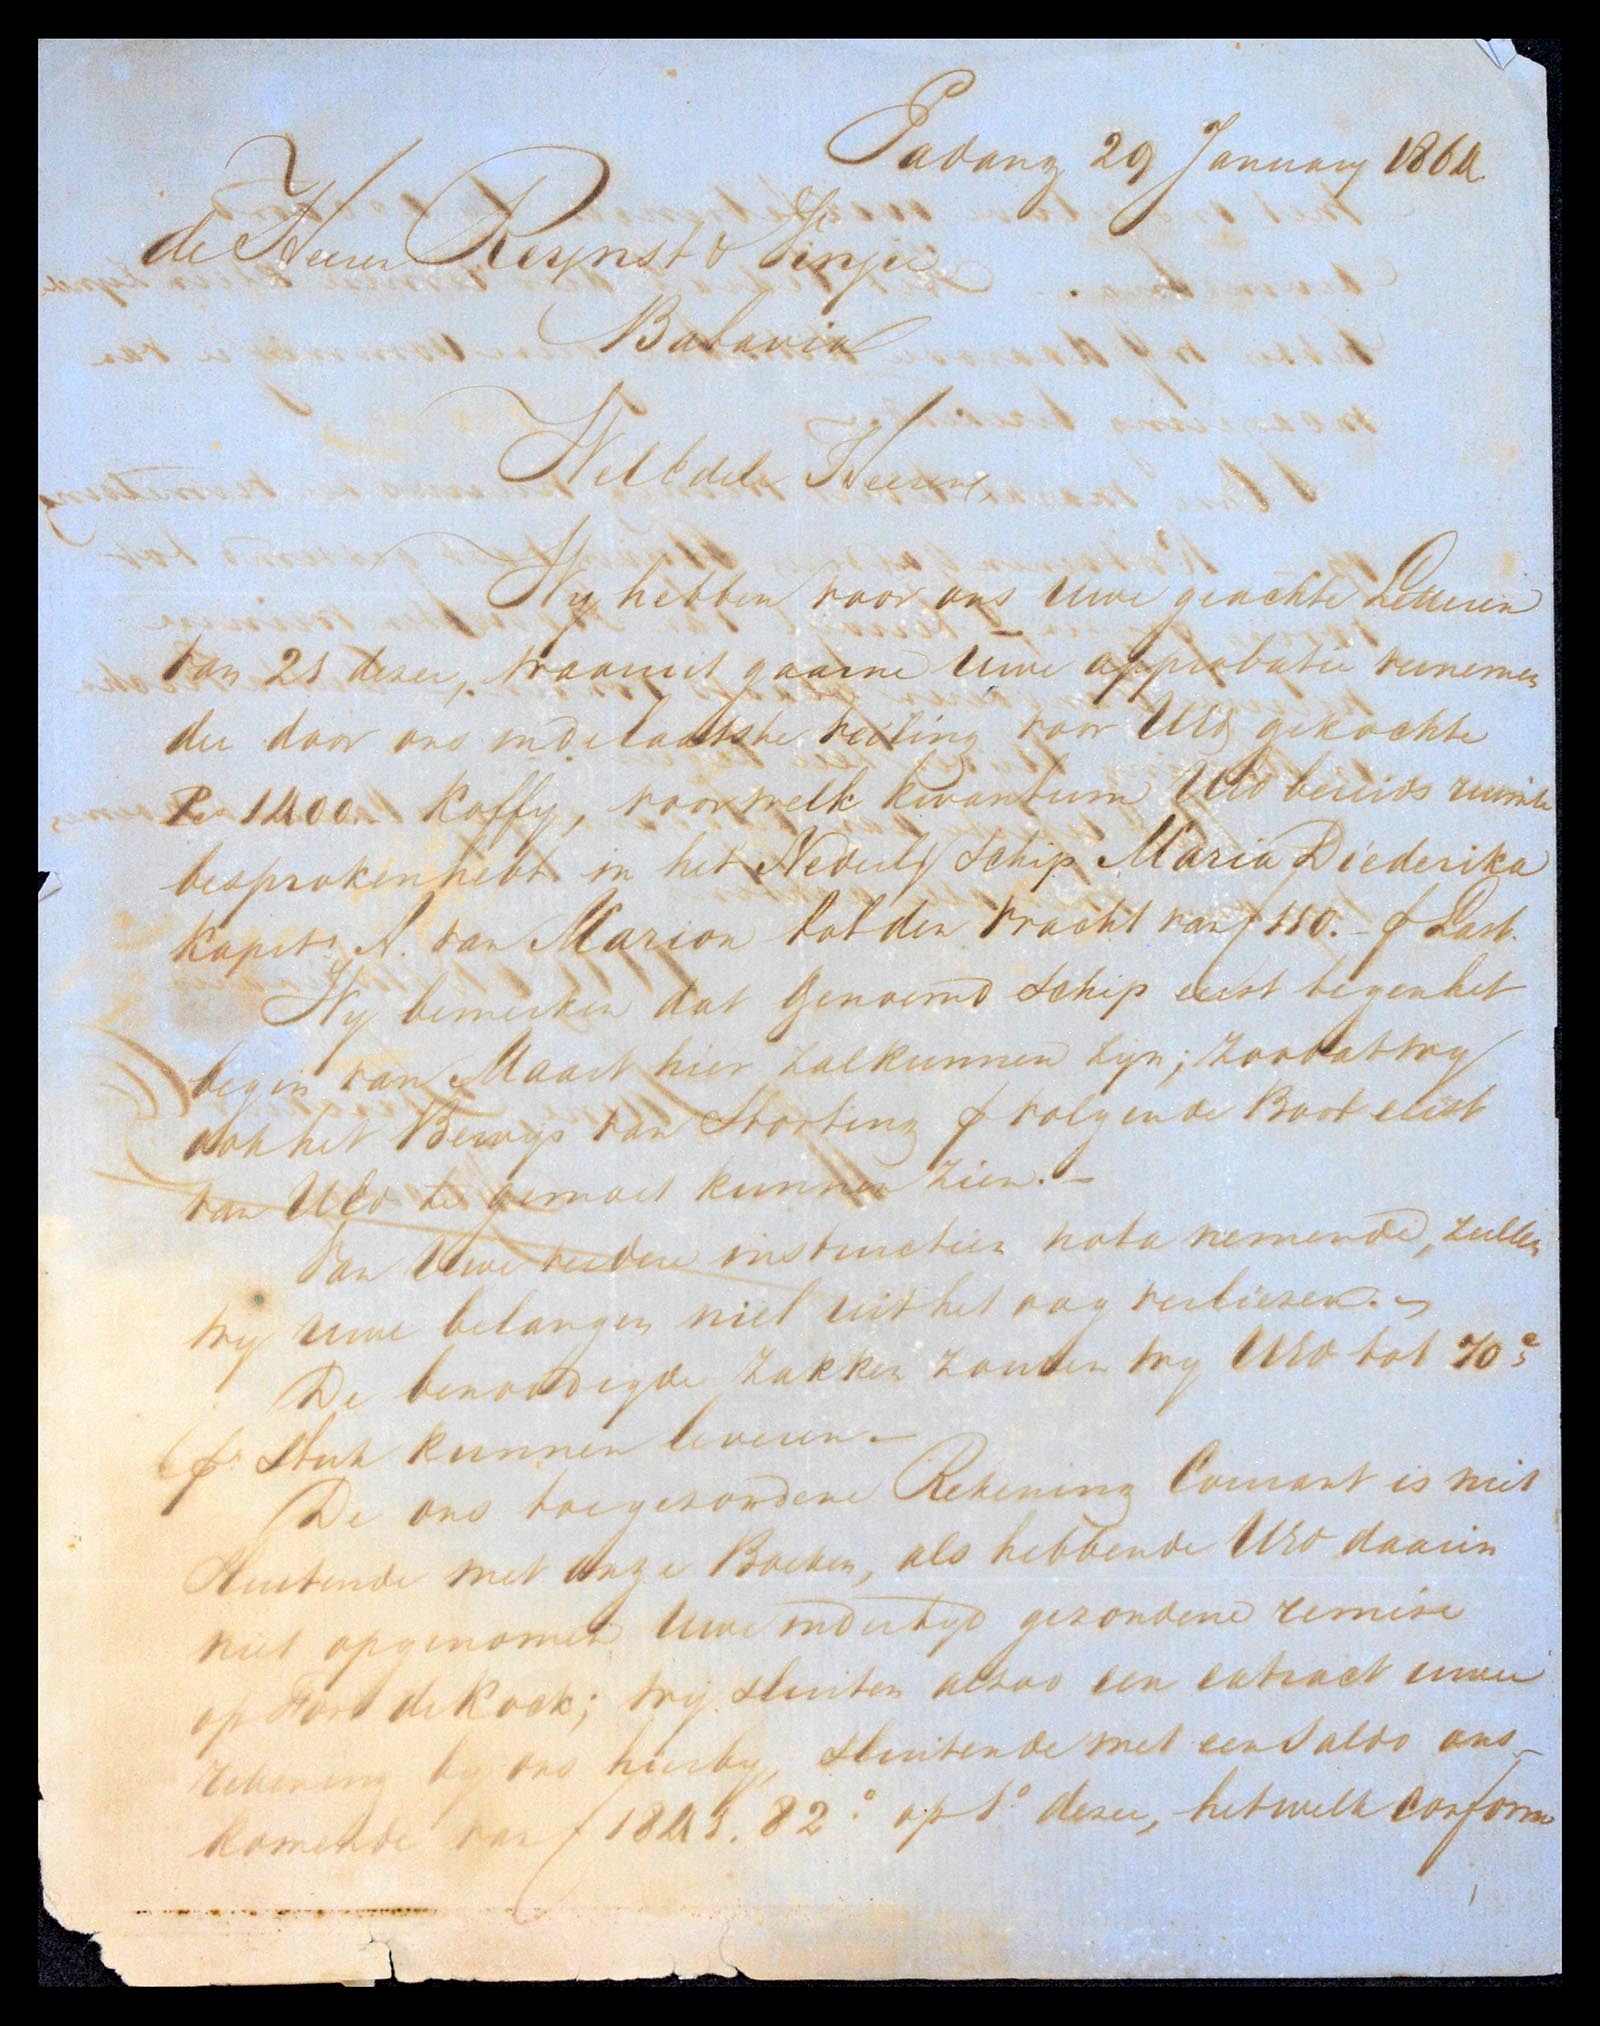 Padang 29 January 1864
de Heeren Reijnst & Vinju
Batavia
WelEdele Heeren,
Wy hebben voor ons Uwe geachte Letteren
van 23 dezer, waaruit gaarne Uwe approbatie vernemen
der door ons in de laatste veiling voor UEd gekochte
Ps 1400. Koffy, voor welk kwantum UEd bereids ruimte
besproken hebt in het Nederl. Schip Maria Diederika
Kapitn A. van Marion tot den vracht van f 110.- p Last.
Wy bemerken dat genoemd schip eerst tegen het
begin van Maart hier zal kunnen zyn; zoodat wy
ook het Bewys van Storting p volgende Boot eerst
van UEd te gemoet kunnen zien.-
Van Uwe verdere instructien nota nemende, zullen
wy Uwe belangen niet uit het oog verliezen.-
De benoodigde zakken zouden wy UEd tot 70 cs
p Stuk kunnen leveren.-
De ons toegezondene Rekening Courant is niet
sluitende met onze Boeken, als hebbende UEd daarin
niet opgenomen Uwe indertyd gezondene remise
op Fort de Kock; wy sluiten alzoo een extract uwer
rekening by ons hierby, sluitende met een Saldo ons
komende van f 1843.82 c op 1o dezer, hetwelk conform